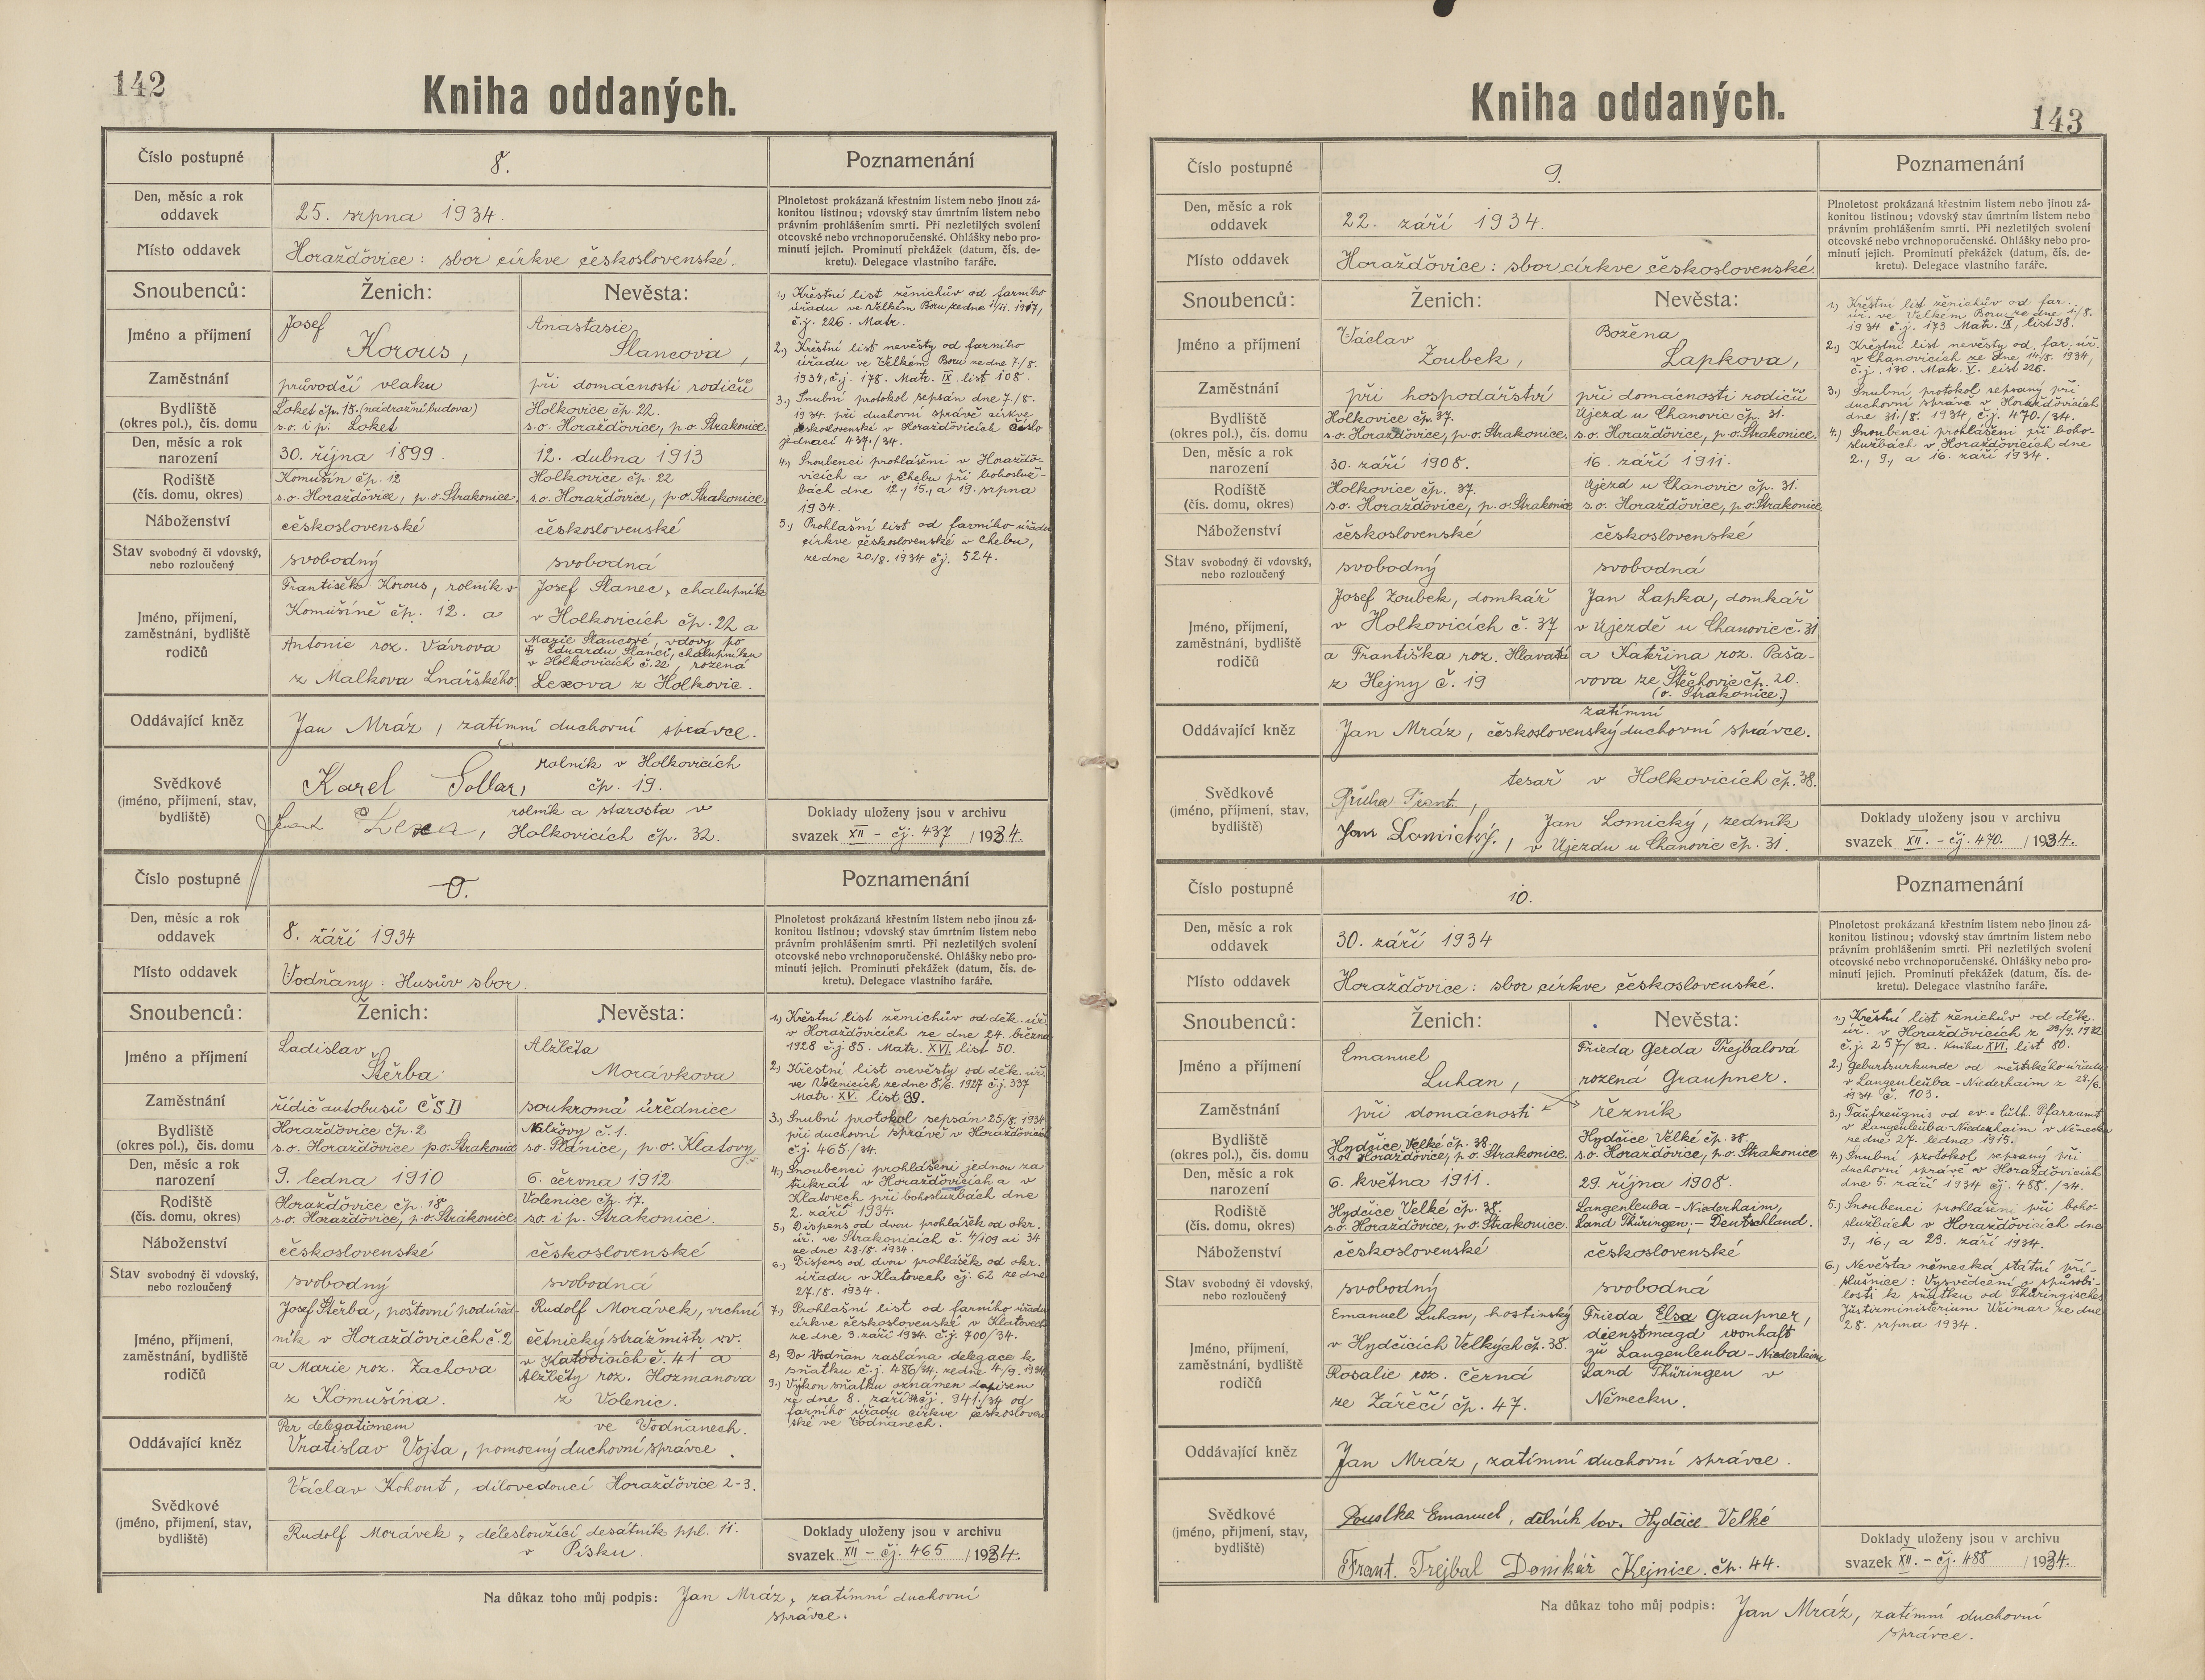 142
Kniha oddaných.
Číslo postupné
8.
Poznamenání
Den, měsíc a rok
oddavek
25. srpna 1934.
Plnoletost prokázaná křestním listem nebo jinou zá-
konitou listinou; vdovský stav úmrtním listem nebo
právním prohlášením smrti. Při nezletilých svolení
otcovské nebo vrchnoporučenské. Ohlášky nebo pro-
minutí jejich. Prominutí překážek (datum, čís. de-
kretu). Delegace vlastního faráře.
Místo oddavek
Horažďovice: sbor církve československé.
Snoubenců:
Ženich:
Nevěsta:
Jméno a příjmení
Josef
Korous,
Anastasie
Slancova,
Zaměstnání
průvodčí vlaku
při domácnosti rodičů
Bydliště
(okres pol.), čís. domu
Loket čp. 15. (nádražní budova)
s.o. i p. Loket
Holkovice čp. 22.
s.o. Horažďovice, p.o. Strakonice.
Den, měsíc a rok
narození
30. října 1899.
12. dubna 1913
Rodiště
(čís. domu, okres)
Komušín čp. 12
s.o. Horažďovice, p.o. Strakonice.
Holkovice čp. 22
s.o. Horažďovice, p.o. Strakonice.
Náboženství
československé
československé
Stav svobodný či vdovský,
nebo rozloučený
svobodný
svobodná
Jméno, příjmení,
zaměstnání, bydliště
rodičů
František Korous, rolník v
Komušíně čp. 12. a
Antonie roz. Vávrova
z Malkova Lnářského.
Josef Slanec, chalupník
v Holkovicích čp. 22 a
Marie Slancové, vdovy po
Eduardu Slanci, chalupníku
v Holkovicích č. 22, rozená
Lexova z Holkovic.
Oddávající kněz
Jan Mráz, zatímní duchovní správce.
Svědkové
(jméno, příjmení, stav,
bydliště)
Karel
rolník v Holkovicích
čp. 19.
Lexa,
rolník a starosta v
Holkovicích čp. 32.
1.) Křestní list ženichův od farního
úřadu ve Velkém Boru ze dne
č.j. 226. Matr.
2.) Křestní list nevěsty od farního
úřadu ve Velkém Boru ze dne 7/8.
1934, č.j. 178. Matr. IX. list 108.
3.) Snubní protokol sepsán dne 7./8.
1934. při duchovní správě církve
československé v Horažďovicích číslo
jednací 437./34.
4.) Snoubenci prohlášeni v Horaždo-
vicích a v Chebu při bohosluž-
bách dne 12., 15., a 19. srpna
1934.
5.) Prohlašní list od farního úřadu
církve československé v Chebu,
ze dne 20./8. 1934 čj. 524.
Doklady uloženy jsou v archivu
svazek XII - čj. 437 /1934.
Číslo postupné
0.
Poznamenání
Den, měsíc a rok
oddavek
8. září 1934
Plnoletost prokázaná křestním listem nebo jinou zá-
konitou listinou; vdovský stav úmrtním listem nebo
právním prohlášením smrti. Při nezletilých svolení
otcovské nebo vrchnoporučenské. Ohlášky nebo pro-
minutí jejich. Prominutí překážek (datum, čís. de-
kretu). Delegace vlastního faráře.
Místo oddavek
Vodňany: Husův sbor.
Snoubenců:
Ženich:
Nevěsta:
Jméno a příjmení
Ladislav
Štěrba
Alžběta
Morávkova
Zaměstnání
řidič autobusů ČSD
soukromá úřednice
Bydliště
(okres pol.), čís. domu
Horažďovice čp. 2
s.o. Horažďovice p.o. Strakonice
č. 1.
so. Plánice, p.o. Klatovy
Den, měsíc a rok
narození
9. ledna 1910
6. června 1912
Rodiště
(čís. domu, okres)
Horažďovice čp. 18
s.o. Horažďovice, p.o. Strakonice.
Volenice čp. 17.
so. i p. Strakonice.
Náboženství
československé
československé
Stav svobodný či vdovský,
nebo rozloučený
svobodný
svobodná
Jméno, příjmení,
zaměstnání, bydliště
rodičů
Josef Štěrba, poštovní podúřed-
ník v Horažďovicích č. 2
a Marie roz. Zachova
z Komušína.
Rudolf Morávek, vrchní
četnický strážmistr vv.
v Katovicích č. 41 a
Alžběty roz. Hozmanova
z Volenic.
Oddávající kněz
Per delegationem
ve Vodňanech.
Vratislav Vojta, pomocný duchovní správce.
Svědkové
(jméno, příjmení, stav,
bydliště)
Václav Kohout, dílovedoucí Horažďovice 2-3.
Rudolf Morávek, délesloužící desátník ppl. 11.
v Písku.
1.) Křestní list ženichův od děk. úř.
v Horažďovicích ze dne 24. března
1928 č.j. 85. Matr. XVI. list 50.
2.) Křestní list nevěsty od děk. úř.
ve Volenicích ze dne 8./6. 1927 č.j. 337
Matr. XV. list 39.
3.) Snubní protokol sepsán 25/8. 1934
při duchovní správě v Horažďovicích
č.j. 465./34.
4.) Snoubenci prohlášeni jednou za
třikrát v Horažďovicích a v
Klatovech při bohoslužbách dne
2. září 1934.
5.) Dispens od dvou prohlášek od okr.
úř. ve Strakonicích č. 4/109 ai 34
ze dne 28./8. 1934.
6.) Dispens od dvou prohlášek od okr.
úřadu v Klatovech čj. 62 ze dne
27./8. 1934.
7.) Prohlašní list od farního úřadu
církve československé v Klatovech
ze dne 3. září 1934. č.j. 700/34.
8.) Do Vodňan zaslána delegace k
sňatku č.j. 486/34, ze dne 4/9. 1934.
9.) Výkon sňatku oznámen dopisem
ze dne 8. září čj. 941./34 od
farního úřadu církve českosloven-
ské ve Vodňanech.
Doklady uloženy jsou v archivu
svazek XII - čj. 465 /1934.
Na důkaz toho můj podpis: Jan Mráz, zatímní duchovní
správce.
143
Kniha oddaných.
Číslo postupné
9.
Poznamenání
Den, měsíc a rok
oddavek
22. září 1934.
Plnoletost prokázaná křestním listem nebo jinou zá-
konitou listinou; vdovský stav úmrtním listem nebo
právním prohlášením smrti. Při nezletilých svolení
otcovské nebo vrchnoporučenské. Ohlášky nebo pro-
minutí jejich. Prominutí překážek (datum, čís. de-
kretu). Delegace vlastního faráře.
Místo oddavek
Horažďovice: sbor církve československé.
Snoubenců:
Ženich:
Nevěsta:
Jméno a příjmení
Václav
Zoubek,
Božena
Lapkova,
Zaměstnání
při hospodářství
při domácnosti rodičů
Bydliště
(okres pol.), čís. domu
Holkovice čp. 37.
s.o. Horažďovice, p.o. Strakonice.
Újezd u Chanovic čp. 31.
s.o. Horažďovice, p.o. Strakonice.
Den, měsíc a rok
narození
30. září 1908.
16. září 1911.
Rodiště
(čís. domu, okres)
Holkovice čp. 37.
s.o. Horažďovice, p.o. Strakonice
Újezd u Chanovic čp. 31.
s.o. Horažďovice, p.o. Strakonice
Náboženství
československé
československé
Stav svobodný či vdovský,
nebo rozloučený
svobodný
svobodná
Jméno, příjmení,
zaměstnání, bydliště
rodičů
Josef Zoubek, domkář
v Holkovicích č. 37
a Františka roz. Hlavatá
z Hejny č. 19
Jan Lapka, domkář
v Újezdě u Chanovic č. 31
a Kateřina roz. Paša-
vova ze Štěchovic čp. 20.
(o. Strakonice.)
Oddávající kněz
zatímní
Jan Mráz, československý duchovní správce.
Svědkové
(jméno, příjmení, stav,
bydliště)
tesař v Holkovicích čp. 38.
Frant.,
Jan Lomický,
Jan Lomický, zedník
v Újezdu u Chanovic čp. 31.
1.) Křestní list ženichův od far.
úř. ve Velkém Boru ze dne 1/8.
1934 č.j. 173 Matr. IX, list 98.
2.) Křestní list nevěsty od far. úř.
v Chanovicích ze dne 14/8. 1934,
č.j. 130. Matr. V. list 226.
3.) Snubní protokol sepsaný při
duchovní správě v Horažďovicích
dne 31./8. 1934, č.j. 470./34.
4.) Snoubenci prohlášeni při boho-
službách v Horažďovicích dne
2., 9., a 16. září 1934.
Doklady uloženy jsou v archivu
svazek XII. - čj. 470. /1934.
Číslo postupné
10.
Poznamenání
Den, měsíc a rok
oddavek
30. září 1934
Plnoletost prokázaná křestním listem nebo jinou zá-
konitou listinou; vdovský stav úmrtním listem nebo
právním prohlášením smrti. Při nezletilých svolení
otcovské nebo vrchnoporučenské. Ohlášky nebo pro-
minutí jejich. Prominutí překážek (datum, čís. de-
kretu). Delegace vlastního faráře.
Místo oddavek
Horažďovice: sbor církve československé.
Snoubenců:
Ženich:
Nevěsta:
Jméno a příjmení
Emanuel
Luhan,
Frieda Gerda Trejbalová
rozená Graupner.
Zaměstnání
při domácnosti
řezník
Bydliště
(okres pol.), čís. domu
Hydčice Velké čp. 38.
s.o. Horažďovice, p.o. Strakonice.
Hydčice Velké čp. 38.
s.o. Horažďovice, p.o. Strakonice
Den, měsíc a rok
narození
6. května 1911.
29. října 1908.
Rodiště
(čís. domu, okres)
Hydčice Velké čp. 38.
s.o. Horažďovice, p.o. Strakonice.
Langenleuba-Niederhaim,
Land Thüringen, - Deutschland.
Náboženství
československé
československé
Stav svobodný či vdovský,
nebo rozloučený
svobodný
svobodná
Jméno, příjmení,
zaměstnání, bydliště
rodičů
Emanuel Luhan, hostinský
v Hydčicích Velkých čp. 38.
Rosalie roz. Černá
ze Zářečí čp. 47.
Frieda Elsa Graupner,
dienstmagd wonhaft
zu Langenleuba-Niederhaim
Land Thüringen v
Německu.
Oddávající kněz
Jan Mráz, zatímní duchovní správce.
Svědkové
(jméno, příjmení, stav,
bydliště)
Emanuel, dělník tov. Hydčice Velké
Frant. Trejbal Domkář Kejnice. čp. 44.
1.) Křestní list ženichův od děk.
úř. v Horažďovicích z 29/9. 1932
č.j. 257/32. Kniha XVI. list 80.
2.) Geburtsurkunde od městského úřadu
v Langenleuba-Niederhaim z 28./6.
1934 č. 103.
3.) Taufzeugnis od ev.-luth. Pfarramt
v Langenleuba-Niederhaim v Německu
ze dne 27. ledna 1915.
4.) Snubní protokol sepsaný při
duchovní správě v Horažďovicích
dne 5. září 1934 čj. 488./34.
5.) Snoubenci prohlášeni při boho-
službách v Horažďovicích dne
9., 16., a 23. září 1934.
6.) Nevěsta německá státní pří-
slušnice: Vysvědčení o způsobi-
losti k sňatku od Thüringisches
Justizministerium Weimar ze dne
28. srpna 1934.
Doklady uloženy jsou v archivu
svazek XII. - čj. 488 /1934.
Na důkaz toho můj podpis: Jan Mráz, zatímní duchovní
správce.